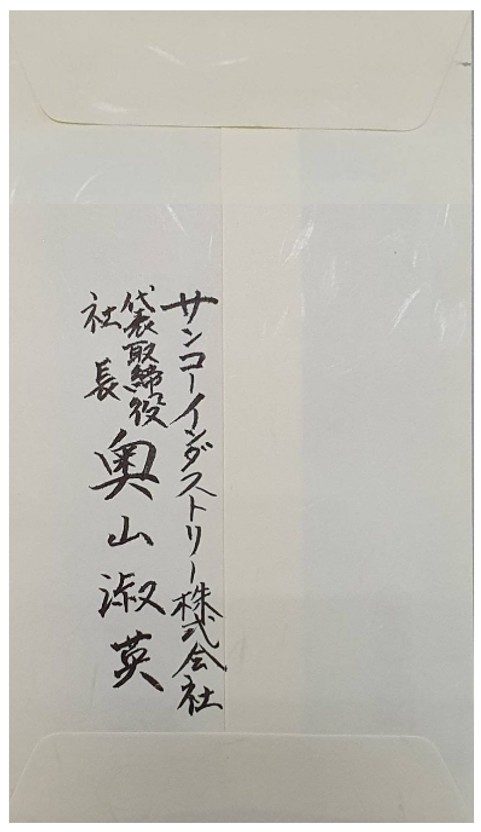 サンコーインダストリー株式会社
代表取締役
社長
奥山淑英